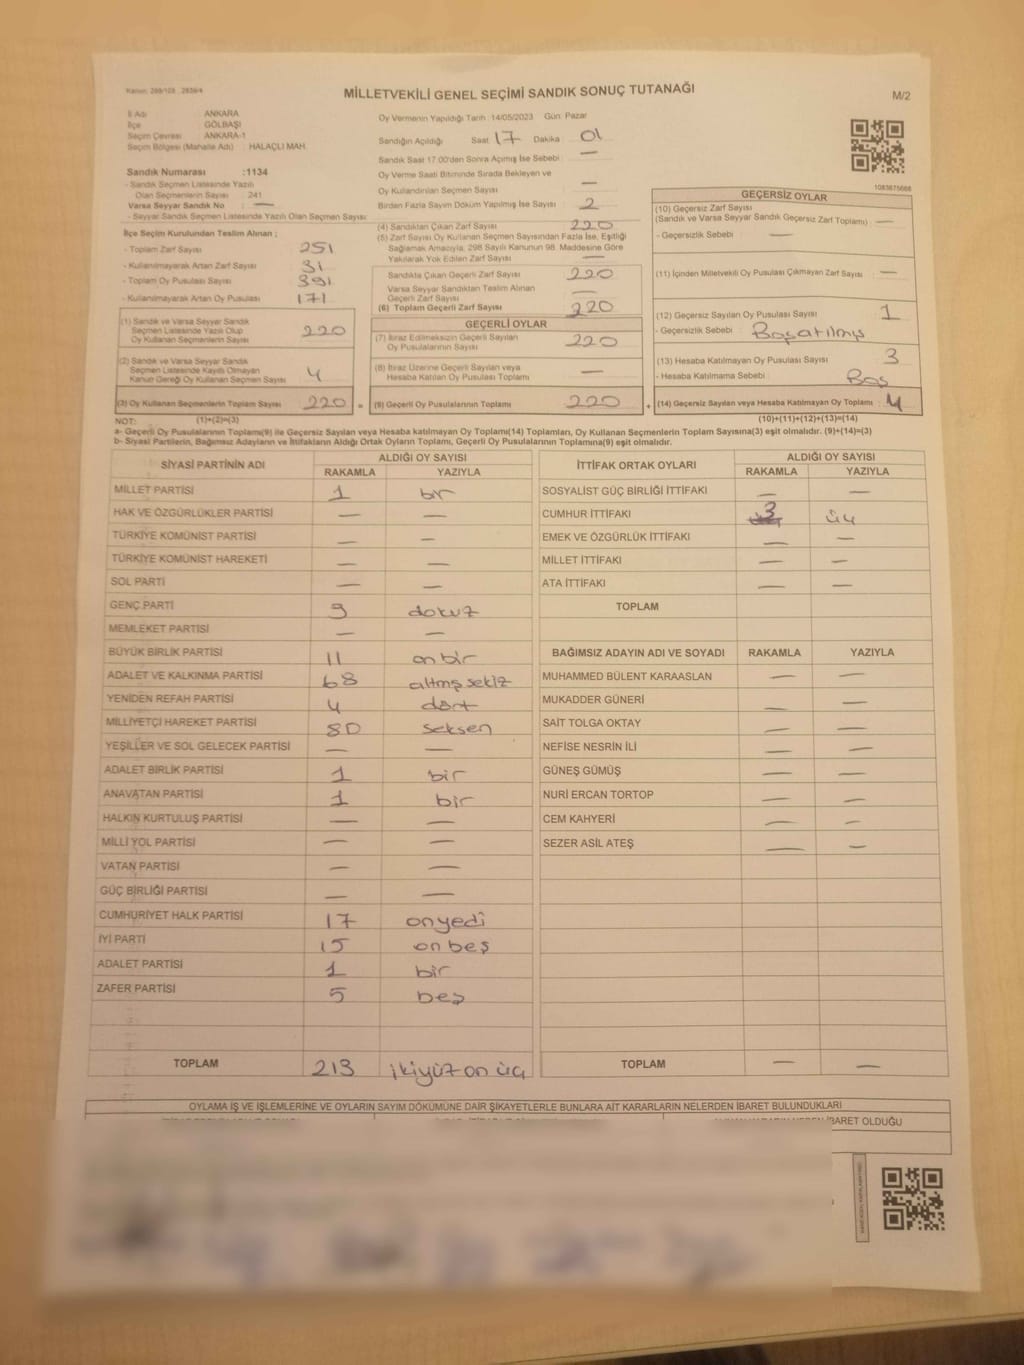 Kanun: 298/105 , 2839/4
MİLLETVEKİLİ GENEL SEÇİMİ SANDIK SONUÇ TUTANAĞI
M/2
İl Adı : ANKARA
İlçe : GÖLBAŞI
Seçim Çevresi : ANKARA-1
Seçim Bölgesi (Mahalle Adı) : HALAÇLI MAH.
Sandık Numarası : 1134
- Sandık Seçmen Listesinde Yazılı
Olan Seçmenlerin Sayısı : 241
Varsa Seyyar Sandık No : —
- Seyyar Sandık Seçmen Listesinde Yazılı Olan Seçmen Sayısı
İlçe Seçim Kurulundan Teslim Alınan ;
- Toplam Zarf Sayısı 251
- Kullanılmayarak Artan Zarf Sayısı 31
- Toplam Oy Pusulası Sayısı 391
- Kullanılmayarak Artan Oy Pusulası 171
(1) Sandık ve Varsa Seyyar Sandık
Seçmen Listesinde Yazılı Olup
Oy Kullanan Seçmenlerin Sayısı 220
(2) Sandık ve Varsa Seyyar Sandık
Seçmen Listesinde Kayıtlı Olmayan
Kanun Gereği Oy Kullanan Seçmen Sayısı 4
(3) Oy Kullanan Seçmenlerin Toplam Sayısı 220 =
Oy Vermenin Yapıldığı Tarih :14/05/2023 Gün: Pazar
Sandığın Açıldığı Saat 17 Dakika 01
Sandık Saat 17:00'den Sonra Açılmış İse Sebebi : —
Oy Verme Saati Bitiminde Sırada Bekleyen ve
Oy Kullandırılan Seçmen Sayısı —
Birden Fazla Sayım Döküm Yapılmış İse Sayısı 2
(4) Sandıktan Çıkan Zarf Sayısı 220
(5) Zarf Sayısı Oy Kullanan Seçmen Sayısından Fazla İse, Eşitliği
Sağlamak Amacıyla, 298 Sayılı Kanunun 98. Maddesine Göre
Yakılarak Yok Edilen Zarf Sayısı —
Sandıkta Çıkan Geçerli Zarf Sayısı 220
Varsa Seyyar Sandıktan Teslim Alınan
Geçerli Zarf Sayısı —
(6) Toplam Geçerli Zarf Sayısı 220
GEÇERLİ OYLAR
(7) İtiraz Edilmeksizin Geçerli Sayılan
Oy Pusulalarının Sayısı 220
(8) İtiraz Üzerine Geçerli Sayılan veya
Hesaba Katılan Oy Pusulası Toplamı —
(9) Geçerli Oy Pusulalarının Toplamı 220 +
1083675666
GEÇERSİZ OYLAR
(10) Geçersiz Zarf Sayısı
(Sandık ve Varsa Seyyar Sandık Geçersiz Zarf Toplamı) —
- Geçersizlik Sebebi : —
(11) İçinden Milletvekili Oy Pusulası Çıkmayan Zarf Sayısı : —
(12) Geçersiz Sayılan Oy Pusulası Sayısı : 1
- Geçersizlik Sebebi : Boşatılmış
(13) Hesaba Katılmayan Oy Pusulası Sayısı 3
- Hesaba Katılmama Sebebi : Boş
(14) Geçersiz Sayılan veya Hesaba Katılmayan Oy Toplamı : 4
NOT: (1)+(2)=(3) (10)+(11)+(12)+(13)=(14)
a- Geçerli Oy Pusulalarının Toplamı(9) ile Geçersiz Sayılan veya Hesaba Katılmayan Oy Toplamı(14) Toplamları, Oy Kullanan Seçmenlerin Toplam Sayısına(3) eşit olmalıdır. (9)+(14)=(3)
b- Siyasi Partilerin, Bağımsız Adayların ve İttifakların Aldığı Ortak Oyların Toplamı, Geçerli Oy Pusulalarının Toplamına(9) eşit olmalıdır.
SİYASİ PARTİNİN ADI ALDIĞI OY SAYISI
RAKAMLA YAZIYLA
MİLLET PARTİSİ 1 bir
HAK VE ÖZGÜRLÜKLER PARTİSİ — —
TÜRKİYE KOMÜNİST PARTİSİ — —
TÜRKİYE KOMÜNİST HAREKETİ — —
SOL PARTİ — —
GENÇ PARTİ 9 dokuz
MEMLEKET PARTİSİ — —
BÜYÜK BİRLİK PARTİSİ 11 on bir
ADALET VE KALKINMA PARTİSİ 68 altmış sekiz
YENİDEN REFAH PARTİSİ 4 dört
MİLLİYETÇİ HAREKET PARTİSİ 80 seksen
YEŞİLLER VE SOL GELECEK PARTİSİ — —
ADALET BİRLİK PARTİSİ 1 bir
ANAVATAN PARTİSİ 1 bir
HALKIN KURTULUŞ PARTİSİ — —
MİLLİ YOL PARTİSİ — —
VATAN PARTİSİ — —
GÜÇ BİRLİĞİ PARTİSİ — —
CUMHURİYET HALK PARTİSİ 17 onyedi
İYİ PARTİ 15 on beş
ADALET PARTİSİ 1 bir
ZAFER PARTİSİ 5 beş
TOPLAM 213 ikiyüz on üç
İTTİFAK ORTAK OYLARI ALDIĞI OY SAYISI
RAKAMLA YAZIYLA
SOSYALİST GÜÇ BİRLİĞİ İTTİFAKI — —
CUMHUR İTTİFAKI 3 üç
EMEK VE ÖZGÜRLÜK İTTİFAKI — —
MİLLET İTTİFAKI — —
ATA İTTİFAKI — —
TOPLAM
BAĞIMSIZ ADAYIN ADI VE SOYADI RAKAMLA YAZIYLA
MUHAMMED BÜLENT KARAASLAN — —
MUKADDER GÜNERİ — —
SAİT TOLGA OKTAY — —
NEFİSE NESRİN İLİ — —
GÜNEŞ GÜMÜŞ — —
NURİ ERCAN TORTOP — —
CEM KAHYERİ — —
SEZER ASİL ATEŞ — —
TOPLAM — —
OYLAMA İŞ VE İŞLEMLERİNE VE OYLARIN SAYIM DÖKÜMÜNE DAİR ŞİKAYETLERLE BUNLARA AİT KARARLARIN NELERDEN İBARET BULUNDUKLARI
İBARET OLDUĞU